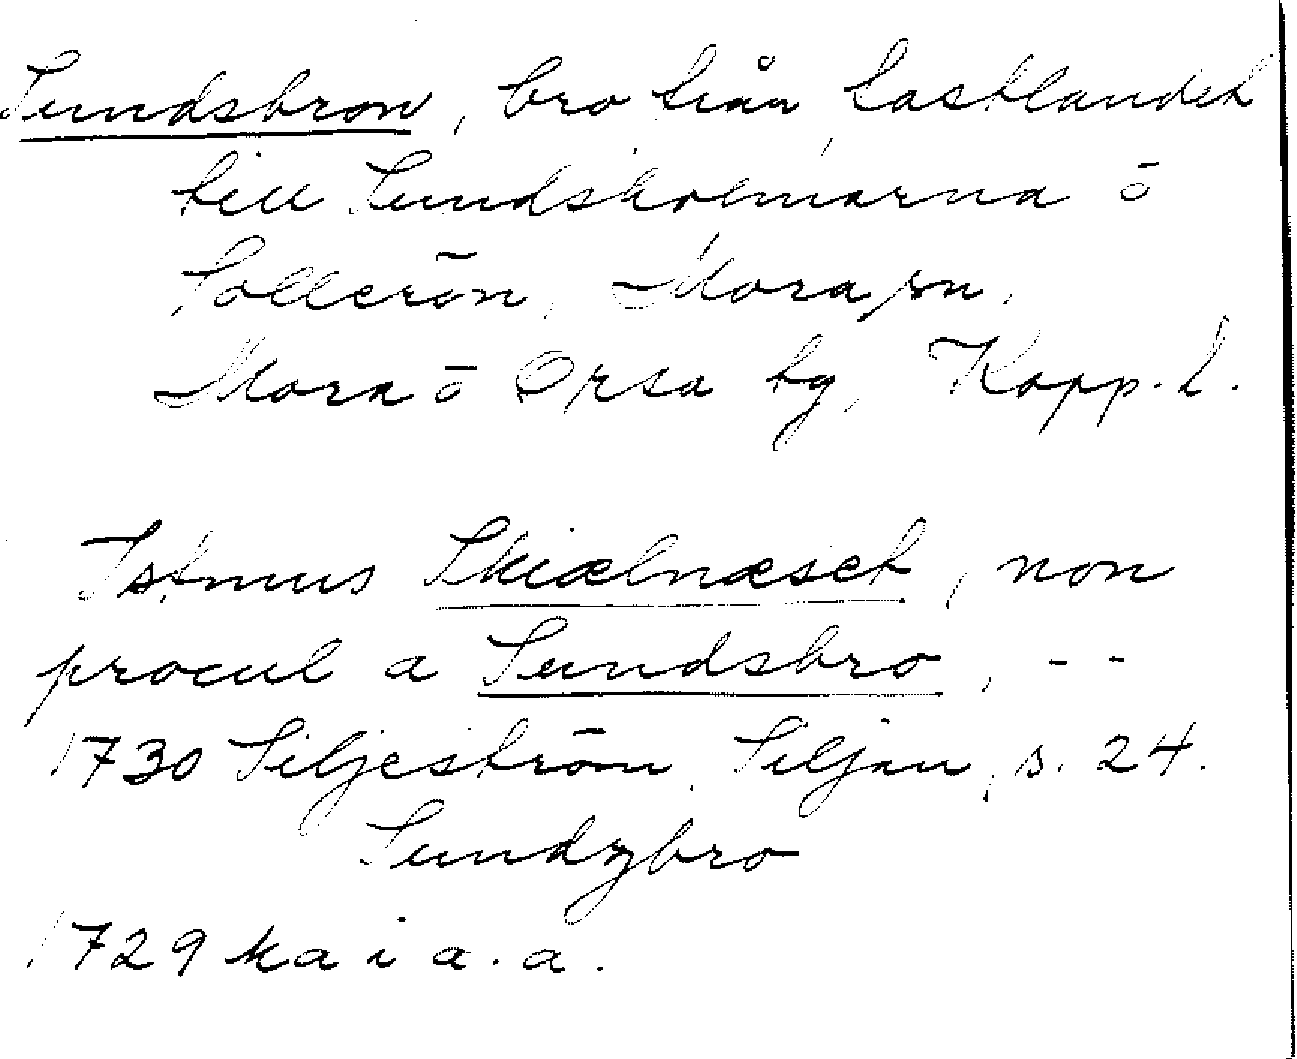 Sundsbron, bro från fastlandet
till Sundsholmarna ō
Sollerön, Mora sn,
Mora o Orsa tg, Kopp. l.
Istmus Skiælnæset, non
procul a Sundsbro, --
1730 Siljeström, Siljan, s. 24.
Sundzbro
1729 ka i a. a.